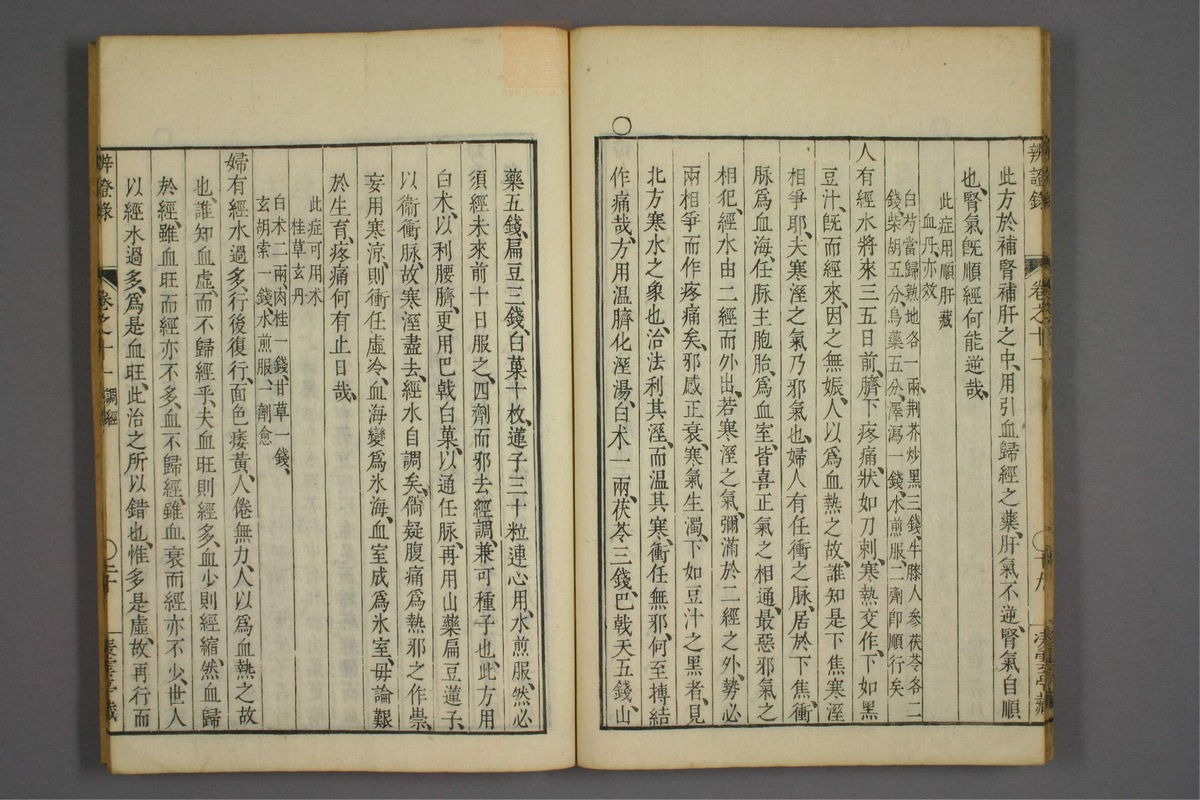 辨證錄
卷之十一
十九
此方於補腎補肝之中、用引血歸經之藥、肝氣不逆、腎氣自順
也、腎氣旣順、經何能逆哉、
此症用順肝藏
血丹、亦效
白芍當歸熟地各一兩荆芥炒黑三錢、牛膝人參茯苓各二
錢柴胡五分、烏藥五分、澤瀉一錢、水煎服、二劑卽順行矣、
人有經水將來三五日前、臍下疼痛、狀如刀刺、寒熱交作、下如黑
豆汁、旣而經來、因之無娠、人以爲血熱之故、誰知是下焦寒溼
相爭耶、夫寒溼之氣乃邪氣也、婦人有任衝之脉、居於下焦、衝
脉爲血海、任脉主胞胎、爲血室、皆喜正氣之相通、最惡邪氣之
相犯、經水由二經而外出、若寒溼之氣、彌滿於二經之外、勢必
兩相爭而作疼痛矣、邪感正衰、寒氣生濁、下如豆汁之黑者、見
北方寒水之象也、治法利其溼、而溫其寒、衝任無邪、何至搏結
作痛哉、方用溫臍化溼湯、白术一兩、茯苓三錢、巴戟天五錢、山
藥五錢、扁豆三錢、白菓十枚、蓮子三十粒連心用、水煎服、然必
須經未來前十日服之、四劑而邪去經調、兼可種子也、此方用
白术、以利腰臍、更用巴戟白菓、以通任脉、再用山藥扁豆蓮子、
以衞衝脉、故寒溼盡去、經水自調矣、倘疑腹痛爲熱邪之作祟、
妄用寒涼、則衝任虛冷、血海變爲氷海、血室成爲氷室、毋論艱
於生育、疼痛何有止日哉、
此症可用术
桂草玄丹
白术二兩、肉桂一錢、甘草一錢、
玄胡索一錢、水煎服、一劑愈
婦有經水過多、行後復行、面色痿黃、人倦無力、人以爲血熱之故
也、誰知血虛、而不歸經乎、夫血旺則經多、血少則經縮、然血歸
於經、雖血旺而經亦不多、血不歸經、雖血衰而經亦不少、世人
以經水過多、爲是血旺、此治之所以錯也、惟多是虛、故再行而
辨證錄
卷之十一
調經
二十